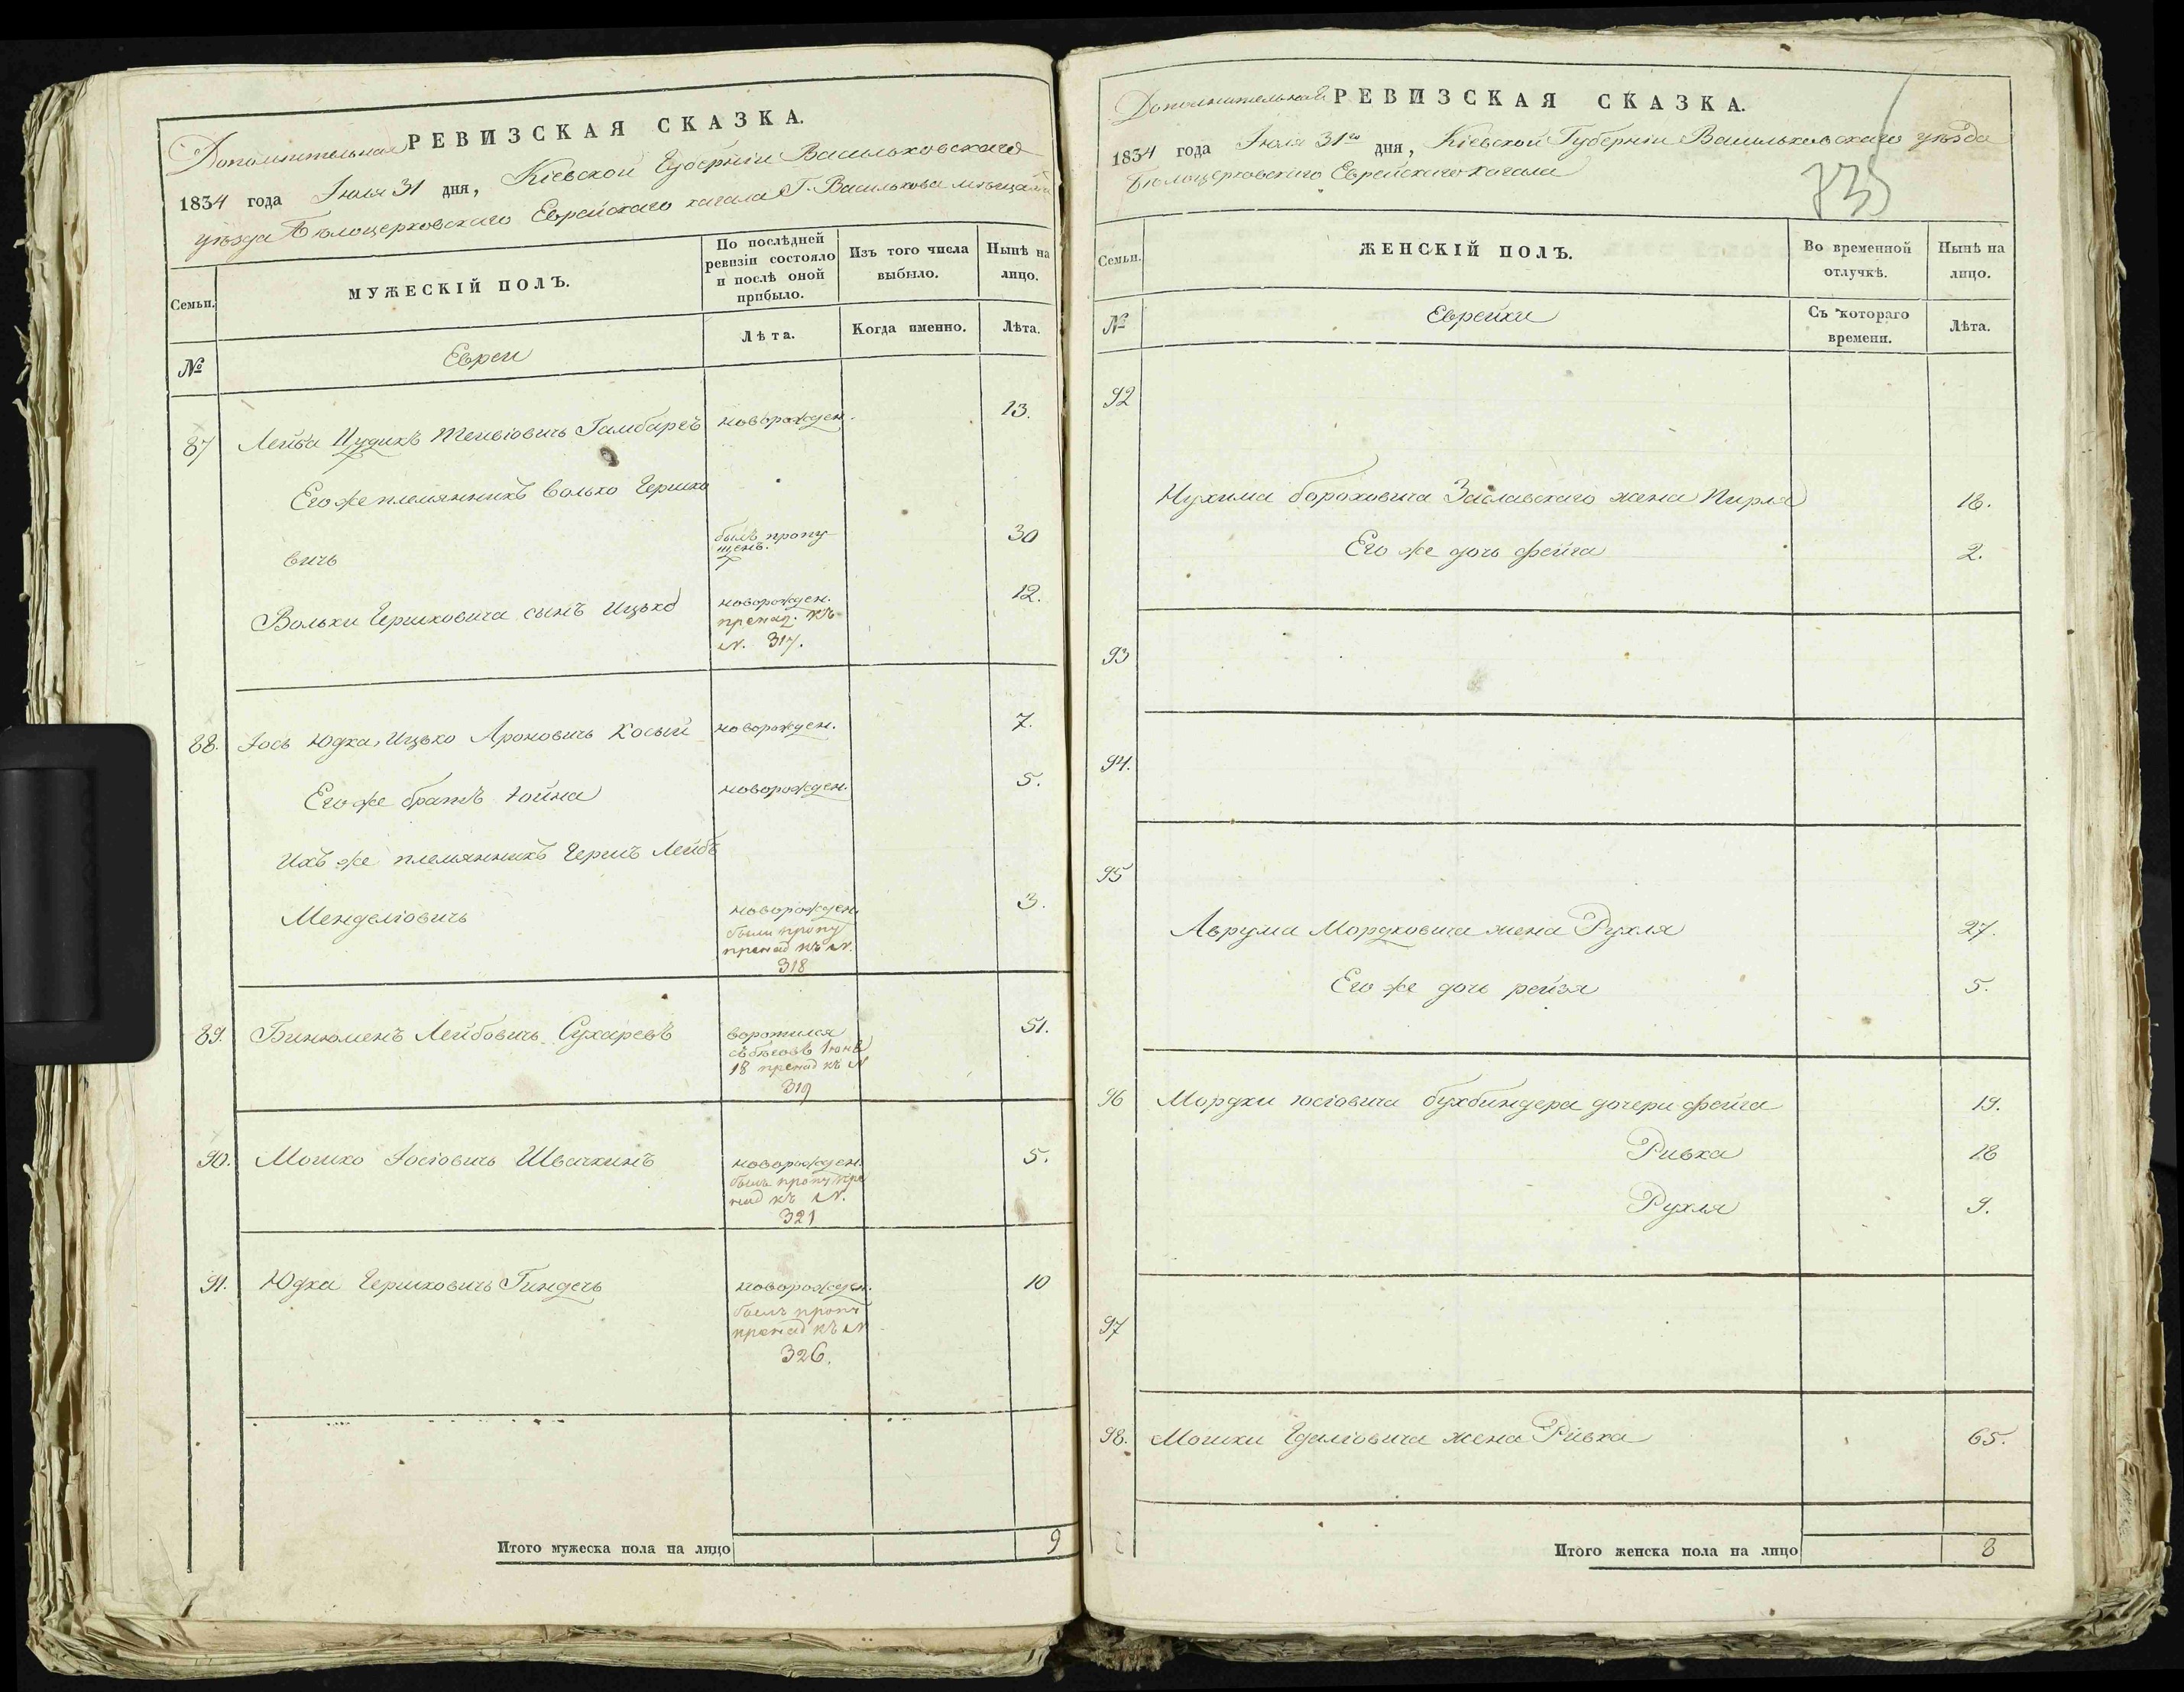 Дополнительная РЕВИЗСКАЯ СКАЗКА.
1834 года Іюля 31 дня, Кіевской Губерніи Васильковскаго
уѣзда Бѣлоцерковскаго Еврейскаго кагала Г. Василькова мѣщанъ
Семьи.
МУЖЕСКІЙ ПОЛЪ.
По послѣдней
ревизіи состояло
и послѣ оной
прибыло.
Изъ того числа
выбыло.
Нынѣ на
лицо.
№
Евреи
Лѣта.
Когда именно.
Лѣта.
87 Лейба Дудикъ новорожден. 13.
Его же племянникъ Волько Гершко
вичъ былъ пропу 30
щенъ.
Вольки Гершковича сынъ Ицько новорожден. 12.
пренад. къ
N. 317.
88. Іось Юдка, Ицько Ароновичь Косый новорожден. 7.
Его же братъ Іойна новорожден. 5.
Ихъ же племянникъ Гершъ Лейбъ
Менделіовичь новорожден. 3.
были пропу
пренад къ N.
318
89. Бинюменъ Лейбовичь Сухаревъ воротился 51.
съ бѣговъ Іюня
18 пренад къ N
319
90. Мошко Іосіовичь Швачкинъ новорожден. 5.
былъ пропу пре
над къ N.
321
91. Юдка Гершковичь Гиндечь новорожден. 10
былъ пропу
пренад къ N
326.
Итого мужеска пола на лицо 9
Дополнительная РЕВИЗСКАЯ СКАЗКА.
1834 года Іюля 31го дня, Кіевской Губерніи Васильковскаго уѣзда
Бѣлоцерковскаго Еврейскаго кагала
735
Семьи.
ЖЕНСКІЙ ПОЛЪ.
Во временной
отлучкѣ.
Нынѣ на
лицо.
№
Еврейки
Съ котораго
времени.
Лѣта.
92
Нухима Бороховича Заславскаго жена Пирля 18.
Его же дочь Фейга 2.
93
94.
95
Аврума Мордковича жена Рухля 27.
Его же дочь рейзя 5.
96 Мордки Іосіовича бухбиндера дочери Фейга 19.
Ривка 18
Рухля 9.
97
98. Мошки Гдаліовича жена Ривка 65.
Итого женска пола на лицо 8